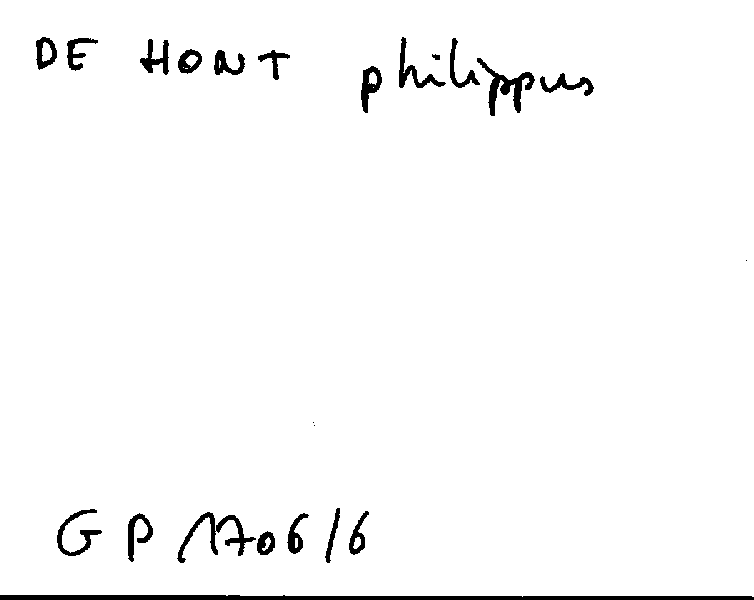 DE HONT philippus
GP 1706/6